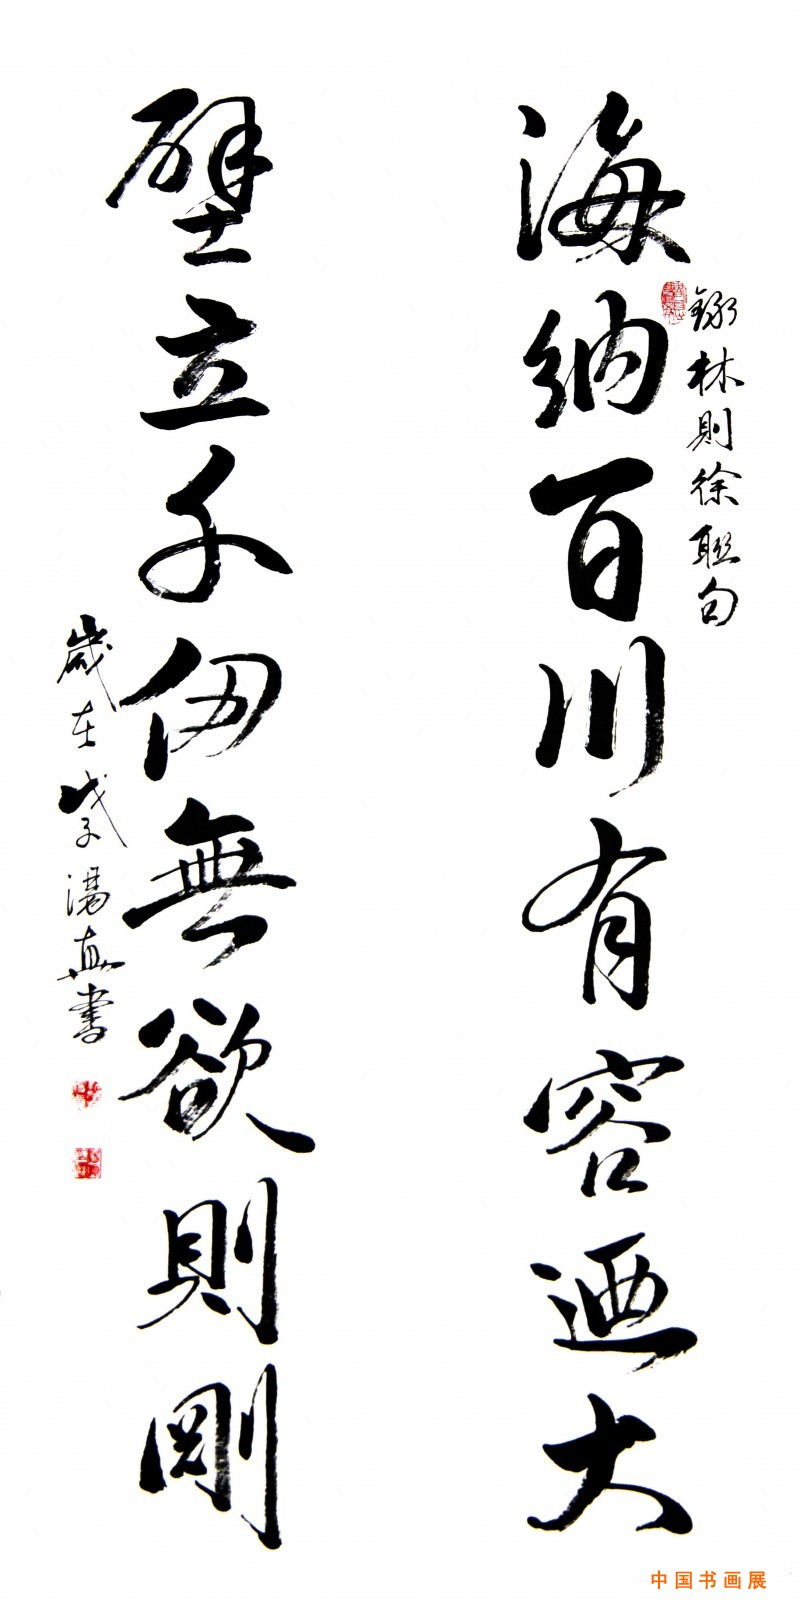 海納百川有容迺大
錄林則徐聯句
壁立千仞無欲則剛
歲在戊子湯真書
中国书画展